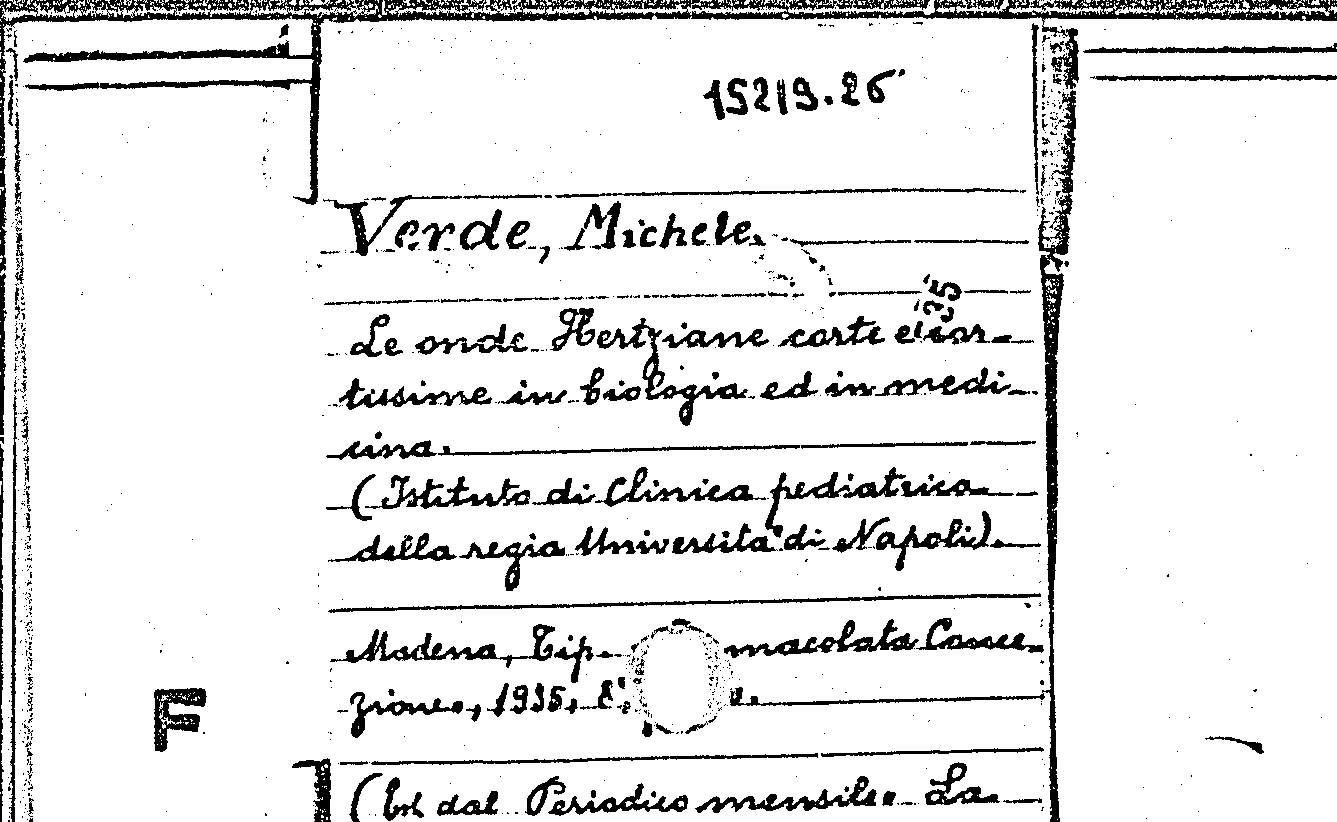 15219.26
Verde, Michele.
35
Le onde Hertziane corte e cor-
tissime in biologia ed in medi-
cina.
(Istituto di Clinica pediatrica
della regia Università di Napoli).
Modena, Tip. macolata Conce-
zione, 1935, 8°,
F
(Est. dal Periodico mensile. La